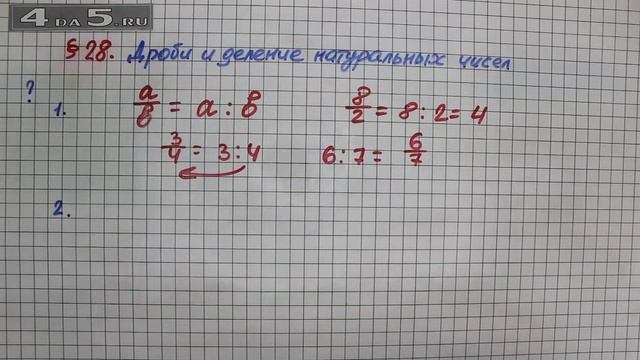 4 DA 5.RU
§ 28. Дроби и деление натуральных чисел
?
1. a/b = a : b 8/2 = 8 : 2 = 4
3/4 = 3 : 4 6 : 7 = 6/7
2.